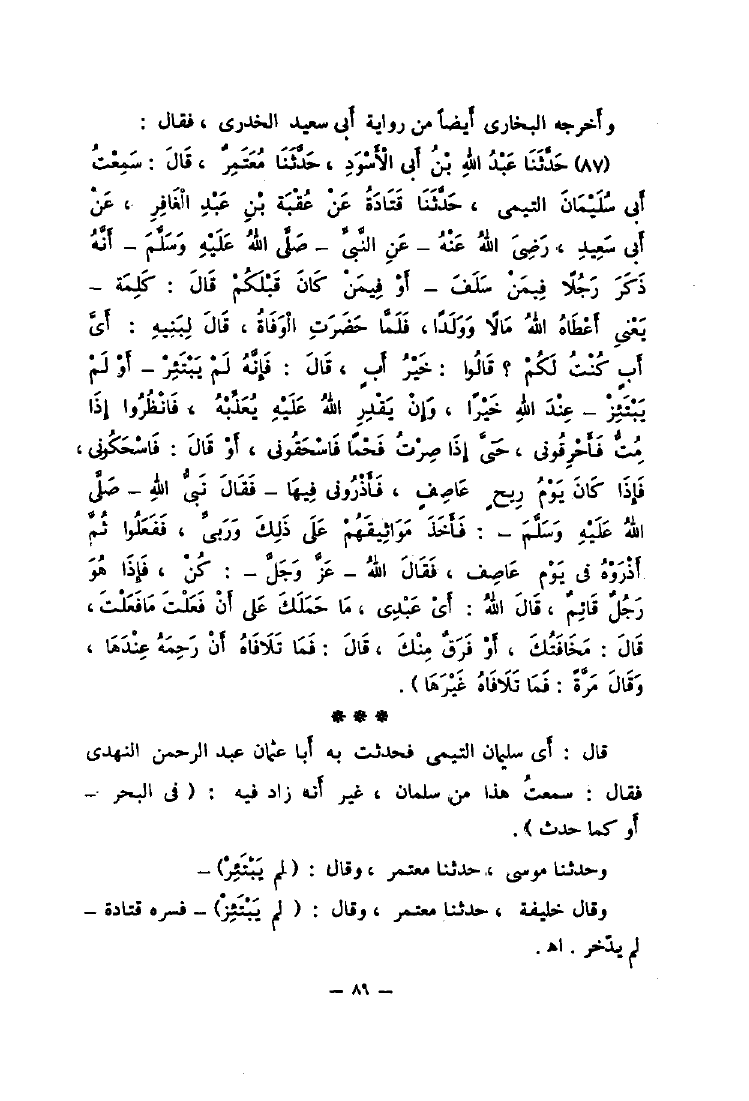 وأخرجه البخارى أيضاً من رواية أبى سعيد الخدرى ، فقال :
(٨٧) حَدَّثَنَا عَبْدُ اللهِ بْنُ أَبى الْأَسْوَدِ ، حَدَّثَنَا مُعْتَمِرٌ ، قَالَ : سَمِعْتُ
أَبى سُلَيْمَانَ التيمى ، حَدَّثَنَا قَتَادَةُ عَنْ عُقْبَةَ بْنِ عَبْدِ الْغَافِرِ ، عَنْ
أَبى سَعِيدٍ ، رَضِىَ اللهُ عَنْهُ – عَنِ النَّبىِّ – صَلَّى اللهُ عَلَيْهِ وَسَلَّمَ – أَنَّهُ
ذَكَرَ رَجُلًا فِيمَنْ سَلَفَ – أَوْ فِيمَنْ كَانَ قَبْلَكُمْ قَالَ : كَلِمَة –
يَعْنِى أَعْطَاهُ اللهُ مَالًا وَوَلَدًا ، فَلَمَّا حَضَرَتِ الْوَفَاةُ ، قَالَ لِبَنِيهِ : أَىَّ
أَبٍ كُنْتُ لَكُمْ ؟ قَالُوا : خَيْرُ أَبٍ ، قَالَ : فَإِنَّهُ لَمْ يَبْتَئِرْ – أَوْ لَمْ
يَبْتَئِزْ – عِنْدَ اللهِ خَيْرًا ، وَإِنْ يَقْدِرِ اللهُ عَلَيْهِ يُعَذِّبْهُ ، فَانْظُرُوا إِذَا
مِتُّ فَأَحْرِقُونى ، حَتىَّ إِذَا صِرْتُ فَحْمًا فَاسْحَقُونى ، أَوْ قَالَ : فَاسْحَكُونى ،
فَإِذَا كَانَ يَوْمُ رِيحٍ عَاصِفٍ ، فَأَذْرُونى فِيهَا – فَقَالَ نَبىُّ اللهِ – صَلَّى
اللهُ عَلَيْهِ وَسَلَّمَ – : فَأَخَذَ مَوَاثِيقَهُمْ عَلَى ذَلِكَ وَرَبىِّ ، فَفَعَلُوا ثُمَّ
أَذْرَوْهُ فى يَوْمٍ عَاصِف ، فَقَالَ اللهُ – عَزَّ وَجَلَّ – : كُنْ ، فَإِذَا هُوَ
رَجُلٌ قَائِمٌ ، قَالَ اللهُ : أَىْ عَبْدِى ، مَا حَمَلَكَ عَلَى أَنْ فَعَلْتَ مَافَعَلْتَ ،
قَالَ : مَخَافَتُكَ ، أَوْ فَرَقٌ مِنْكَ ، قَالَ : فَمَا تَلَافَاهُ أَنْ رَحِمَهُ عِنْدَهَا ،
وَقَالَ مَرَّةً : فَمَا تَلَافَاهُ غَيْرَهَا ) .
* * *
قال : أى سليمان التيمى فحدثت به أبا عثمان عبد الرحمن النهدى
فقال : سمعتُ هذا من سلمان ، غير أنه زاد فيه : ( فى البحر –
أو كما حدث ) .
وحدثنا موسى ، حدثنا معتمر ، وقال : ( لم يَبْتَئِرْ) –
وقال خليفة ، حدثنا معتمر ، وقال : ( لم يَبْتَئِزْ) – فسره قتادة –
لم يدّخر . اهـ .
– ٨٩ –